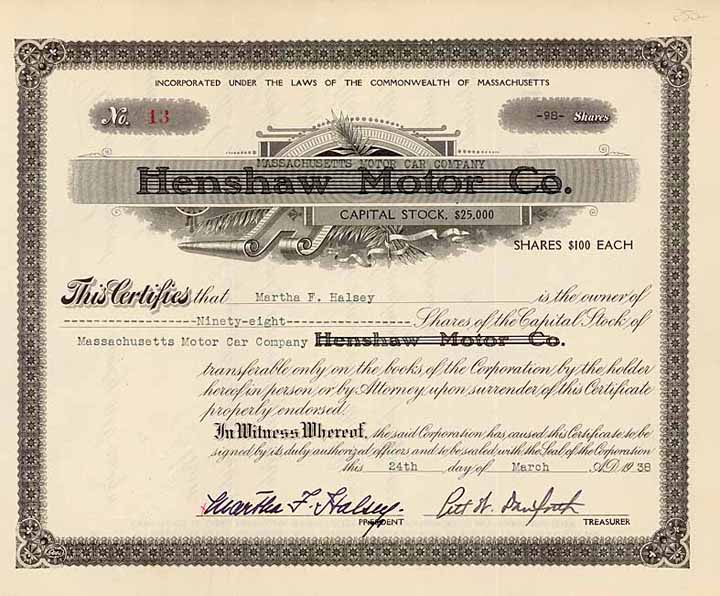 INCORPORATED UNDER THE LAWS OF THE COMMONWEALTH OF MASSACHUSETTS
No. 13
-98- Shares
MASSACHUSETTS MOTOR CAR COMPANY
Henshaw Motor Co.
CAPITAL STOCK, $25,000
SHARES $100 EACH
This Certifies that Martha F. Halsey is the owner of
Ninety-eight Shares of the Capital Stock of
Massachusetts Motor Car Company Henshaw Motor Co.
transferable only on the books of the Corporation by the holder
hereof in person or by Attorney upon surrender of this Certificate
properly endorsed.
In Witness Whereof, the said Corporation has caused this Certificate to be
signed by its duly authorized officers and to be sealed with the Seal of the Corporation
this 24th day of March A.D. 1938
Martha F. Halsey.
PRESIDENT
TREASURER